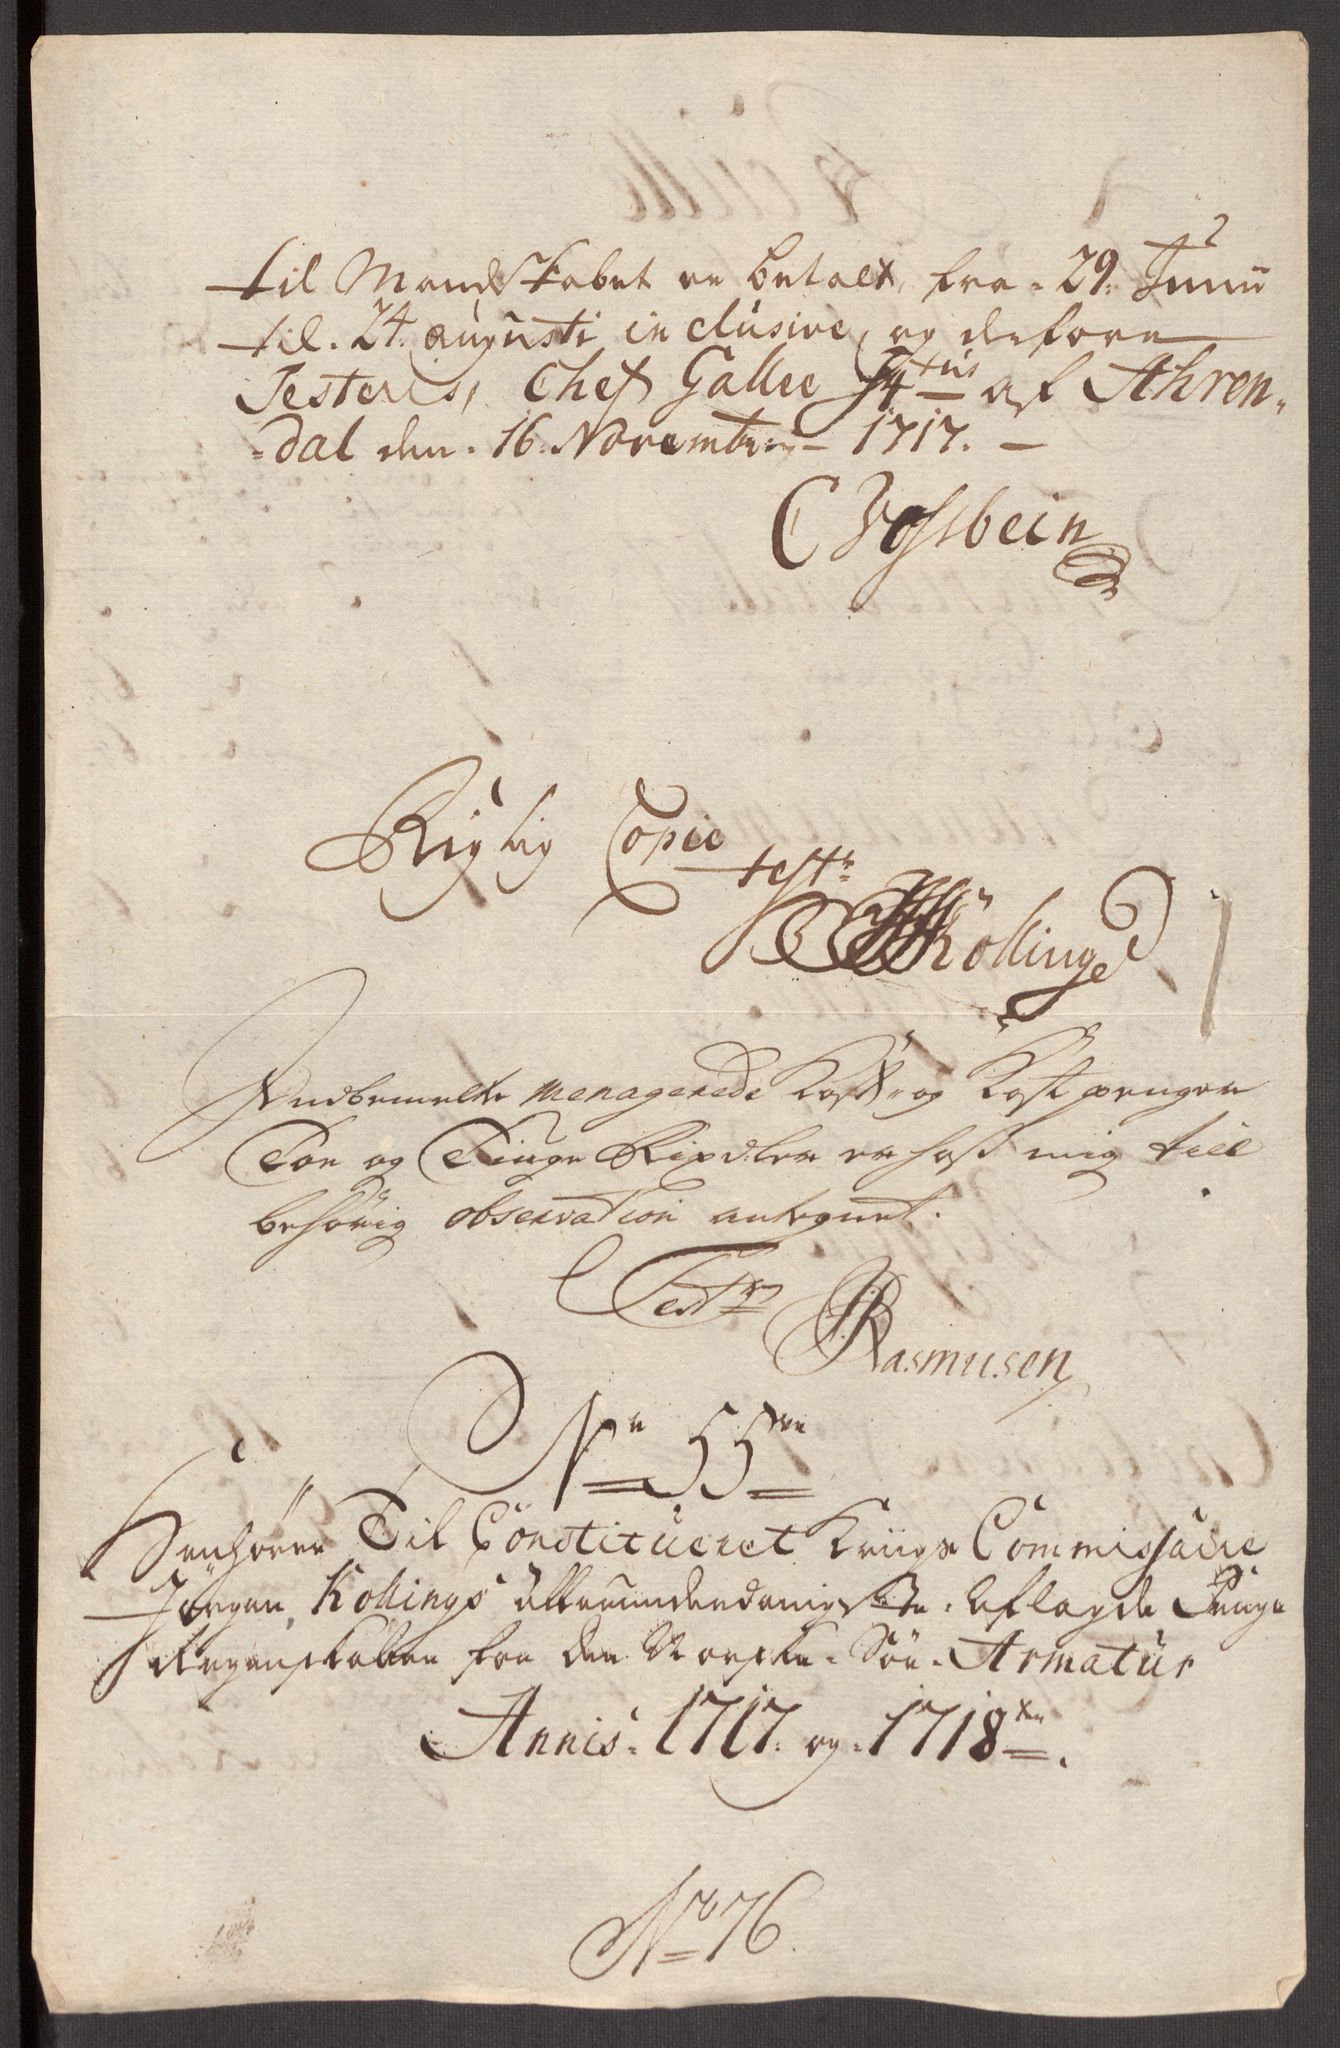 til Mandskabet er betalt, fra 29. Junii
til 24. augusti inclusive, og derfore
Testeris, Chef Gallie St. af Ahren-
dal den 16 November 1717.
C Vossbein
Rigtig Copie
teste
Kolling
Indbemelte menagerede Kost og Kostpenger
Toe og Tiuge Rixdler er hoss mig till
behørig observation antegnet.
Test
Rasmusen
No 55
Henhører Til Constitueret Kriigs Commissarie
Jørgen Kollings allerunderdanigste aflagde Penge
Regenskaber for den Norske Söe Armatur
Annis 1717. og 1718
No 76.